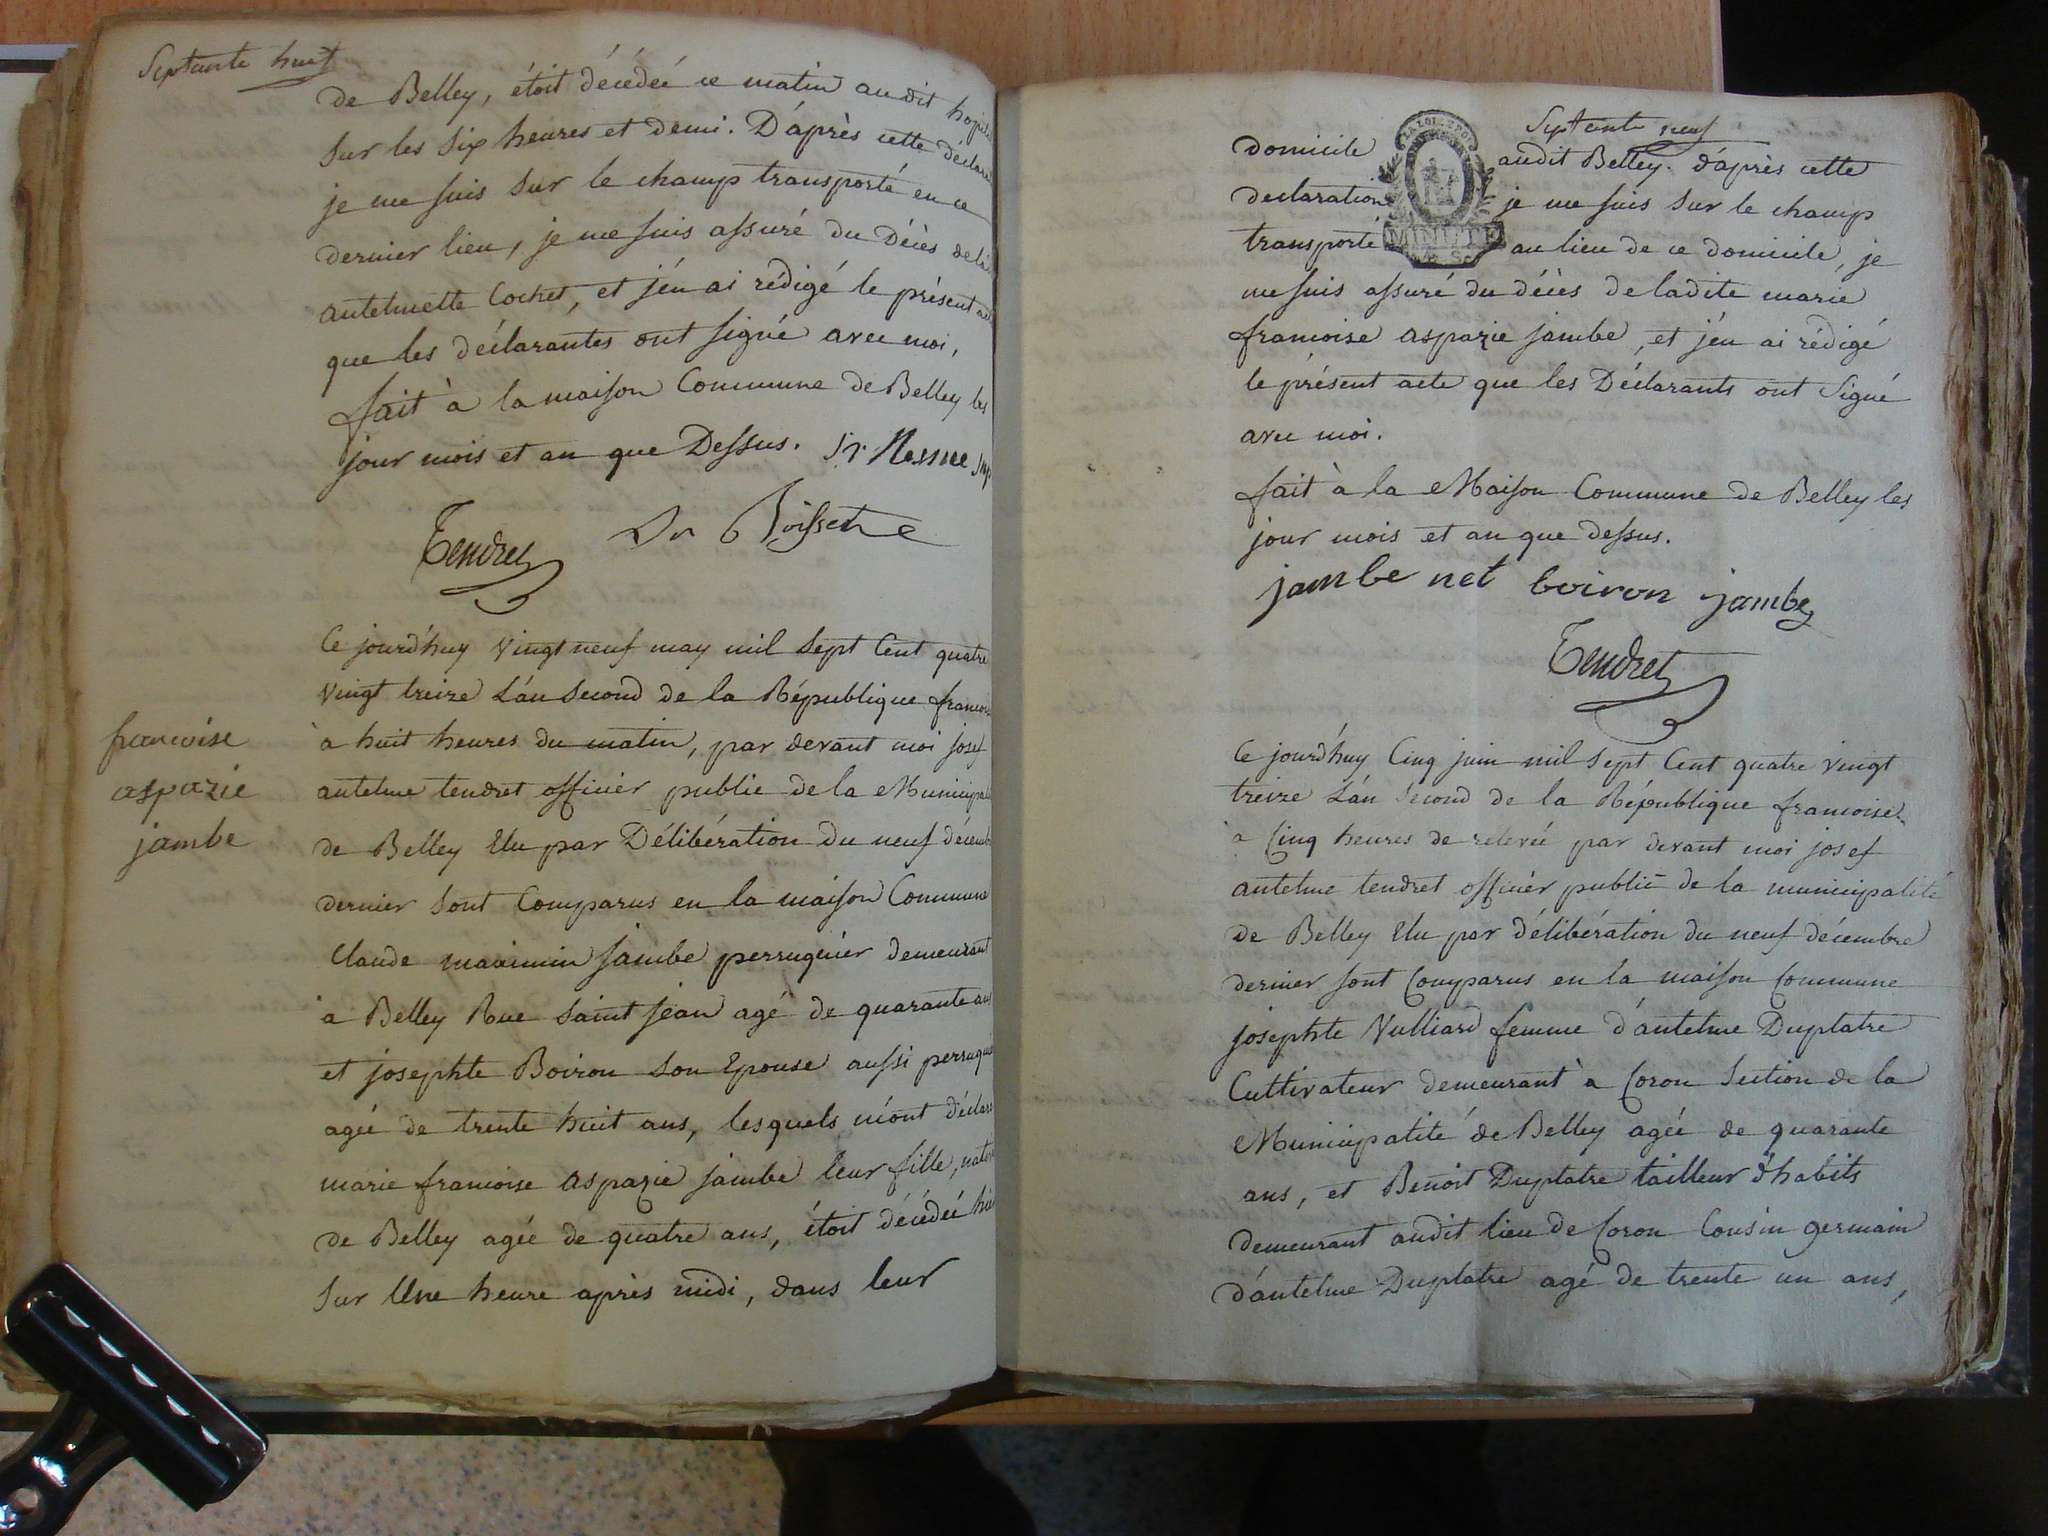 Septante huit
de Belley, étoit décédée ce matin audit
sur les six heures et demi. D'après cette
je me suis sur le champ transporté en ce
dernier lieu, je me suis assuré du Décès
antelmette Cochet, et j'en ai rédigé le présent
que les déclarantes ont signé avec moi,
fait à la maison Commune de Belley les
jour mois et an que Dessus. Sr
Tendret
Ce jourd'huy vingt neuf may mil sept Cent quatre
vingt treize L'an second de la République
à huit heures du matin, par devant moi josef
antelme tendret officier public de la
de Belley Elu par Délibération du neuf
dernier sont Comparus en la maison Commune
Claude maximin jambe perruquier demeurant
à Belley Rue saint jean agé de quarante ans
et josephte Boiron son Epouse aussi
agée de trente huit ans, lesquels m'ont
marie francoise aspazie jambe leur fille,
de Belley agée de quatre ans, étoit décédée
sur Une heure après midi, dans leur
francoise
aspazie
jambe
Septante neuf
domicile audit Belley. d'après cette
declaration je me suis sur le champ
transporté au lieu de ce domicile, je
me suis assuré du décès de ladite marie
francoise aspazie jambe, et j'en ai rédigé
le présent acte que les Déclarants ont signé
avec moi.
fait à la Maison Commune de Belley les
jour mois et an que dessus.
jambe net boiron jambe
Tendret
Ce jourd'huy Cinq juin mil sept Cent quatre vingt
treize L'an second de la République francoise
à Cinq heures de relevée par devant moi josef
antelme tendret officier public de la municipalité
de Belley Elu par délibération du neuf décembre
dernier sont Comparus en la maison Commune
josephte Vulliard femme d'antelme Duplatre
Cultivateur demeurant à Coron Section de la
Municipalité de Belley agée de quarante
ans, et Benoit Duplatre tailleur d'habits
demeurant audit lieu de Coron Cousin germain
d'antelme Duplatre agé de trente un ans,
MINUTE